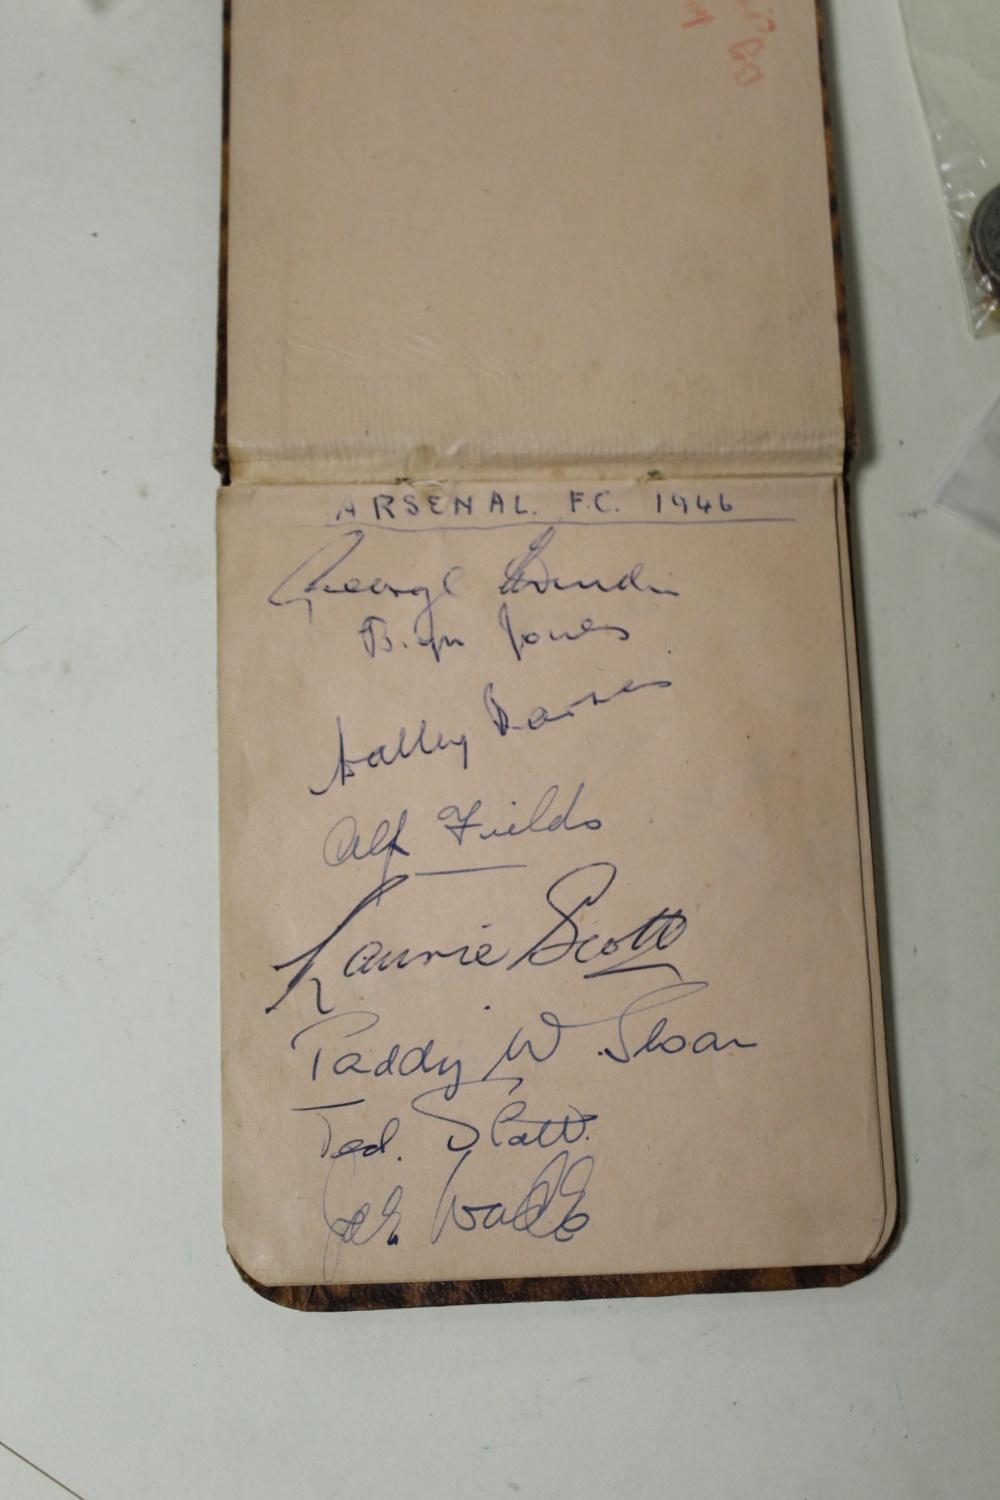 ARSENAL. F.C. 1946
George
Bryn Jones
Walley Barnes
Alf Fields
Laurie Scott
Paddy W Sloan
Ted. Platt.
Jack Wade